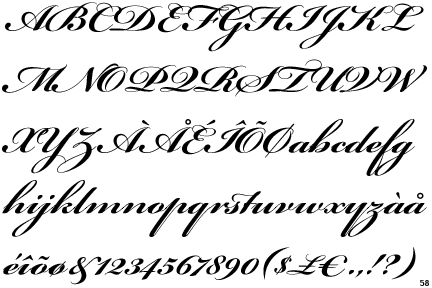 ABCDEFGHIJKL
MNOPQRSTUVW
XYZÀÅÉÎÕØabcdefg
hijklmnopqrstuvwxyzàå
éîõø&1234567890($£€.,!?)
58